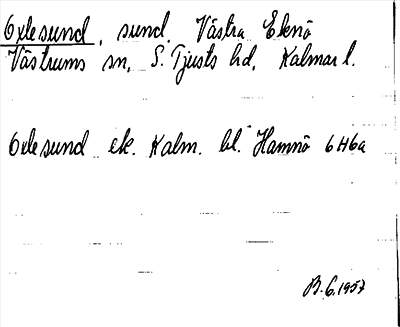 Oxlesund, sund, Västra Eknö
Västrums sn, S. Tjusts hd, Kalmar l.
Oxlesund ek. Kalm. bl. Hamnö 6H6a
B.G. 1957